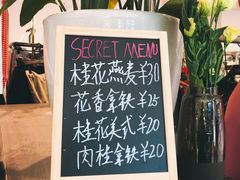 SECRET MENU
桂花燕麦¥30
花香拿铁¥25
桂花美式¥20
肉桂拿铁¥20